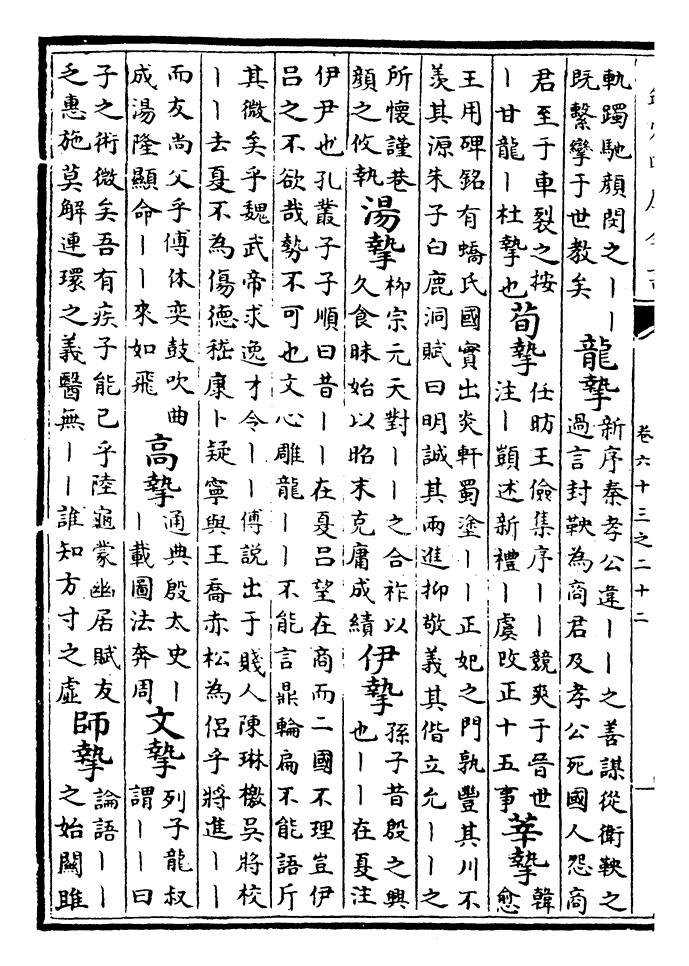 欽定四庫全書
卷六十三之二十二
軌躅馳顏閔之丨丨
既繫攣于世教矣
龍摯
新序秦孝公違丨丨之善謀從衛鞅之
過言封鞅為商君及孝公死國人怨商
君至于車裂之按
丨甘龍丨杜摯也
荀摯
任昉王儉集序丨丨競爽于晉世
注丨顗述新禮丨虞改正十五事
莘摯
韓
愈
王用碑銘有蟜氏國實出炎軒蜀塗丨丨正妃之門孰豐其川不
羨其源朱子白鹿洞賦曰明誠其兩進抑敬義其偕立允丨丨之
所懷謹巷
顏之攸執
湯摯
柳宗元天對丨丨之合祚以
久食昧始以昭末克庸成績
伊摯
孫子昔殷之興
也丨丨在夏注
伊尹也孔叢子子順曰昔丨丨在夏呂望在商而二國不理豈伊
呂之不欲哉勢不可也文心雕龍丨丨不能言鼎輪扁不能語斤
其微矣乎魏武帝求逸才令丨丨傅說出于賤人陳琳檄吳將校
丨丨去夏不為傷德嵇康卜疑寧與王喬赤松為侶乎將進丨丨
而友尚父乎傅休奕鼓吹曲
成湯隆顯命丨丨來如飛
高摯
通典殷太史丨
丨載圖法奔周
文摯
列子龍叔
謂丨丨曰
子之術微矣吾有疾子能已乎陸龜蒙幽居賦友
乏惠施莫解連環之義醫無丨丨誰知方寸之虛
師摯
論語丨丨
之始關雎